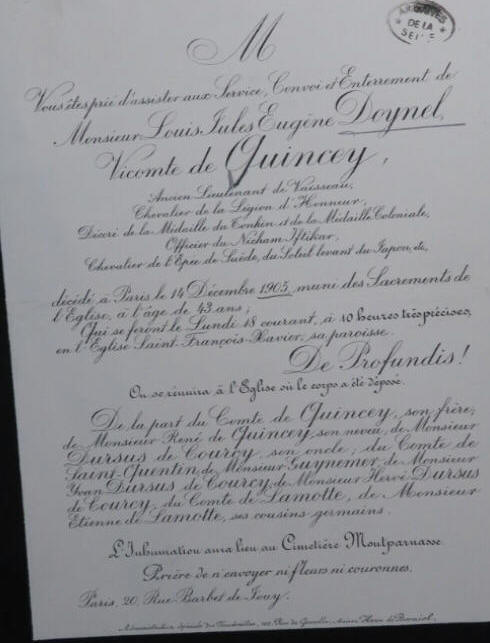 ARCHIVES
DE LA
SEINE
M
Vous êtes prié d'assister aux Service, Convoi et Enterrement de
Monsieur Louis Jules Eugène Doynel,
Vicomte de Quincey,
Ancien Lieutenant de Vaisseau,
Chevalier de la Légion d'Honneur,
Décoré de la Médaille du Tonkin et de la Médaille Coloniale,
Officier du Nicham Iftikar,
Chevalier de l'Epée de Suède, du Soleil levant du Japon, &,
décédé à Paris, le 14 Décembre 1905, muni des Sacrements de
l'Eglise, à l'âge de 43 ans;
Qui se feront le Lundi 18 courant, à 10 heures très précises,
en l'Eglise Saint-François-Xavier, sa paroisse.
De Profundis!
On se réunira à l'Eglise où le corps a été déposé.
De la part du Comte de Quincey, son frère;
de Monsieur René de Quincey, son neveu, de Monsieur
Dursus de Courcy, son oncle; du Comte de
Saint-Quentin, de Monsieur Guynemer, de Monsieur
Yvan Dursus de Courcy, de Monsieur Hervé Dursus
de Courcy, du Comte de Lamotte, de Monsieur
Etienne de Lamotte, ses cousins germains.
L'Inhumation aura lieu au Cimetière Montparnasse.
Prière de n'envoyer ni fleurs ni couronnes.
Paris, 20, Rue Barbet de Jouy.
Administration spéciale des Funérailles, Rue de Grenelle, Henri de Borniol.